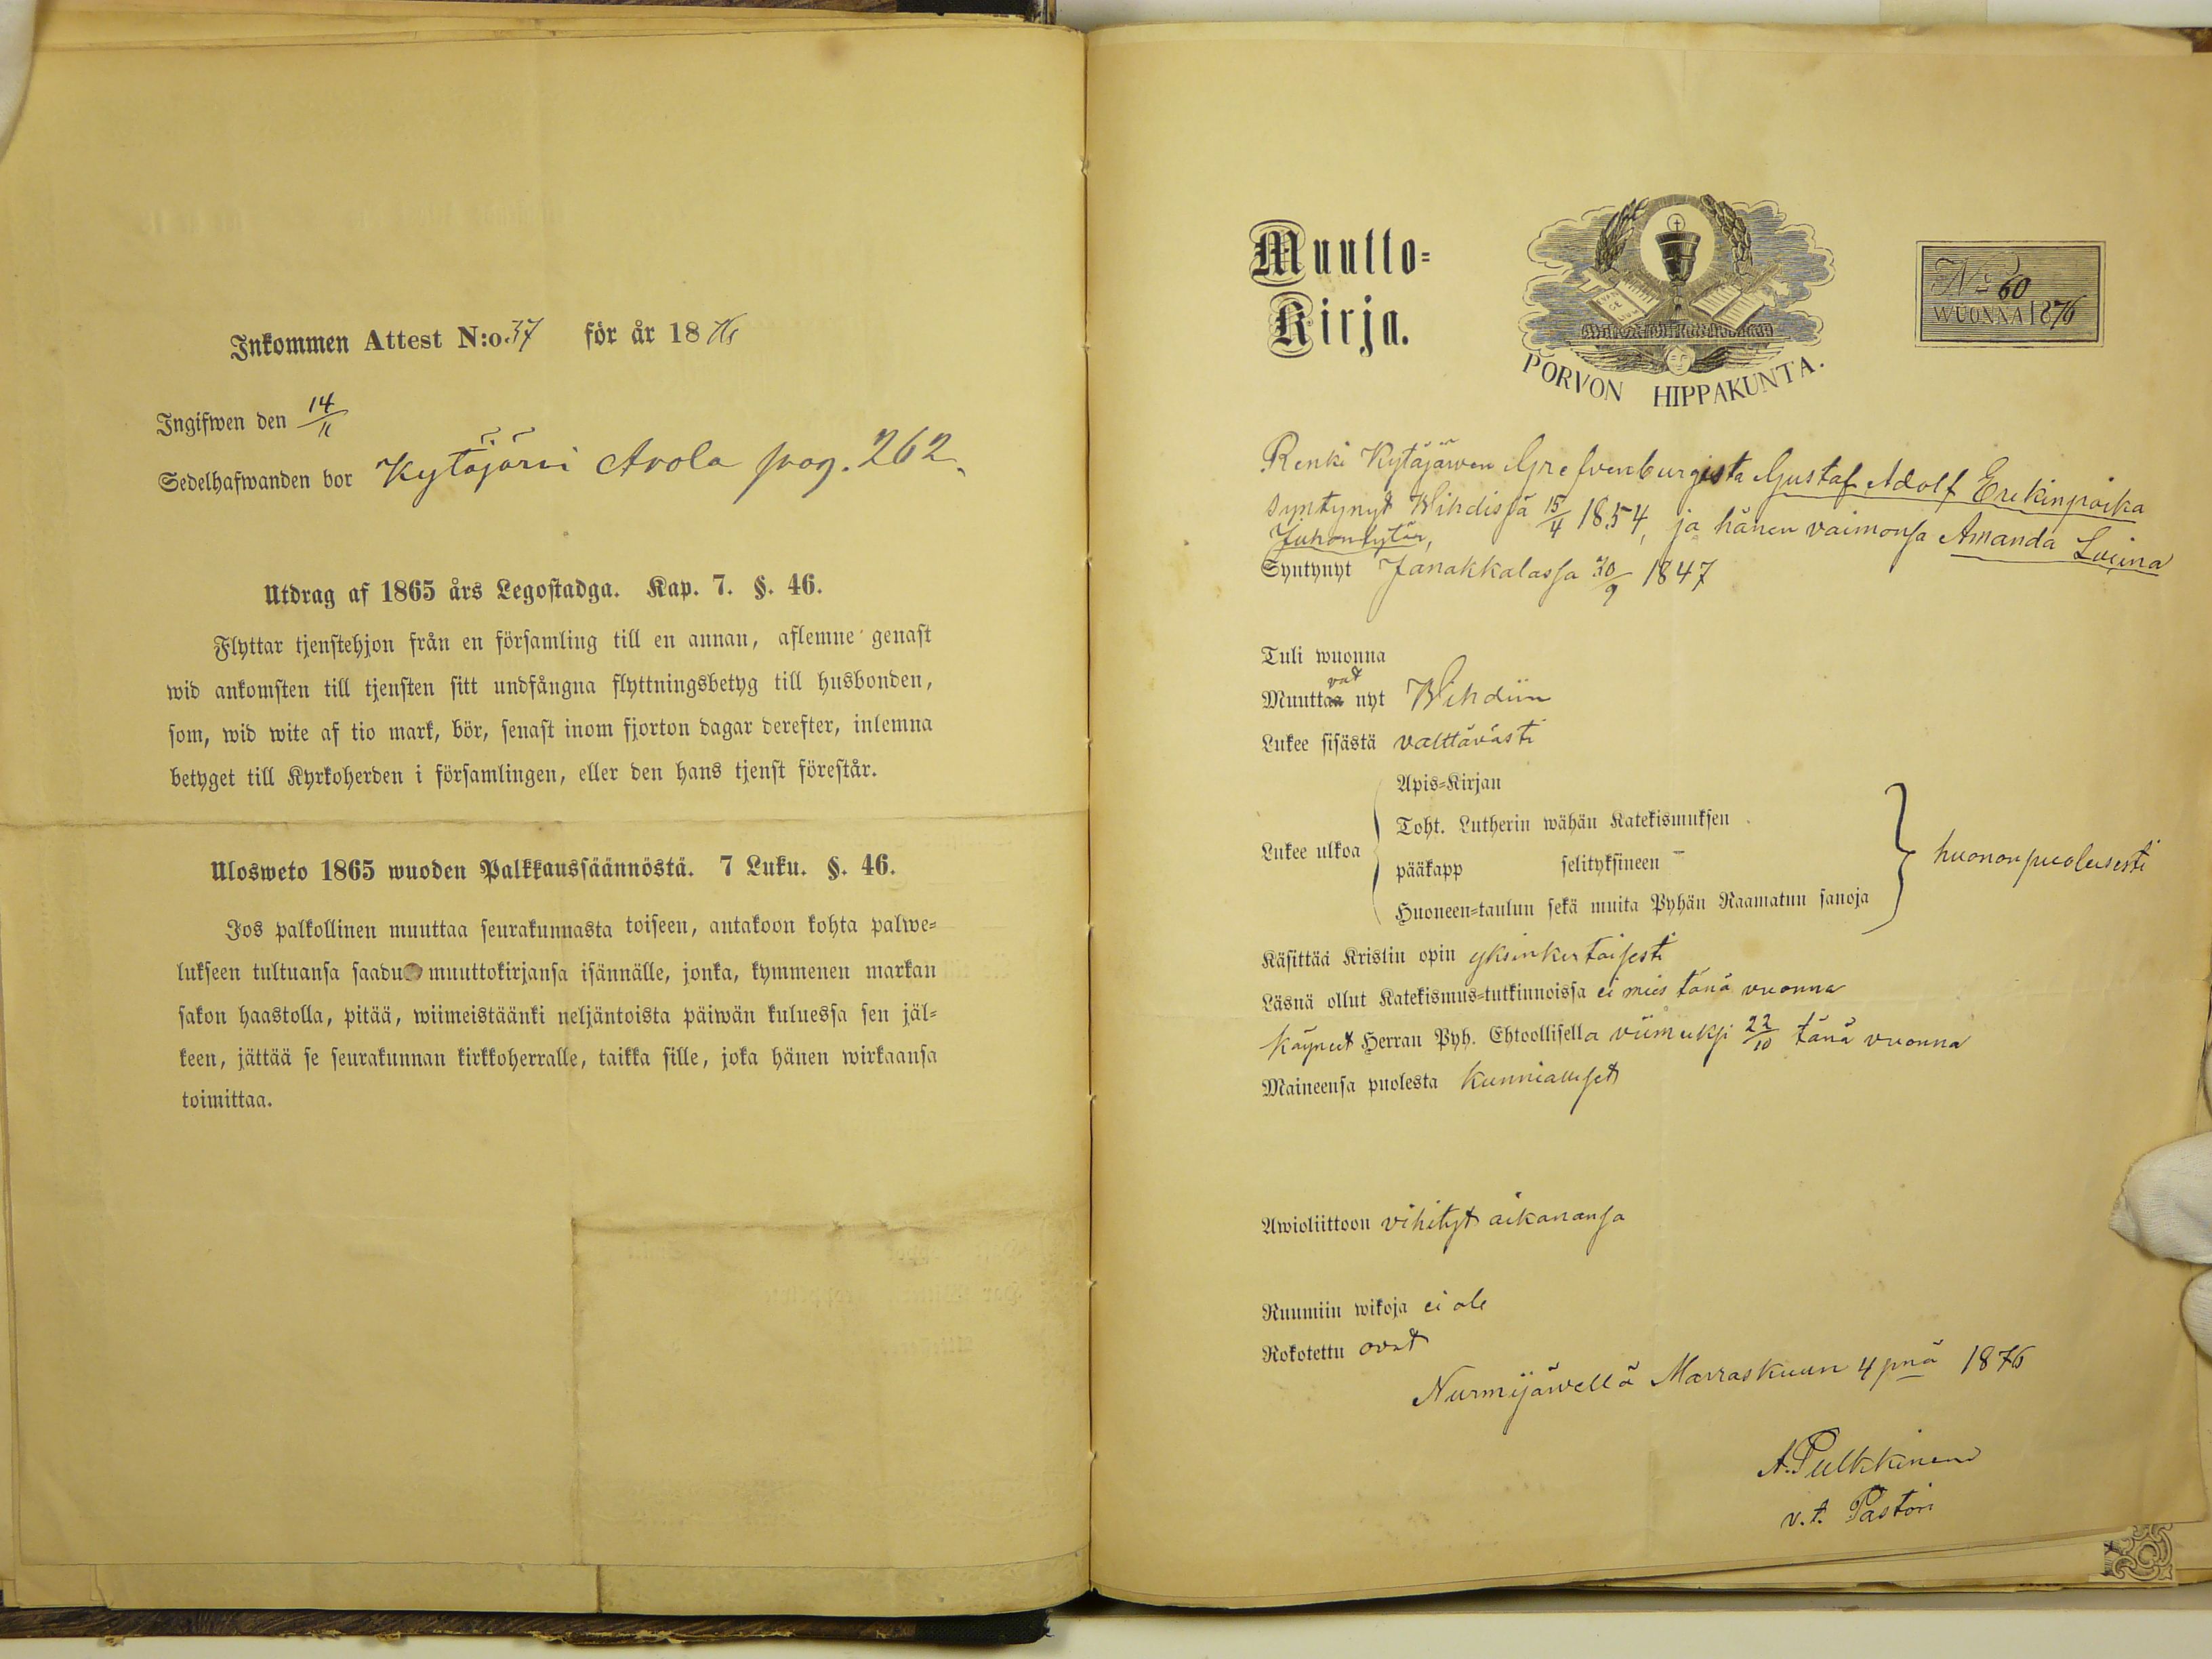 Inkommen Attest N:o 37 för år 1876
Ingifwen den 14/11
Sedelhafwanden bor Kytäjärvi Arola pag. 262.
Utdrag af 1865 års Legostadga. Kap. 7. §. 46.
Flyttar tjenstehjon från en församling till en annan, aflemne genast
wid ankomsten till tjensten sitt undfångna flyttningsbetyg till husbonden,
som, wid wite af tio mark, bör, senast inom fjorton dagar derefter, inlemna
betyget till Kyrkoherden i församlingen, eller den hans tjenst förestår.
Ulosweto 1865 wuoden Palkkaussäännöstä. 7 Luku. §. 46.
Jos palkollinen muuttaa seurakunnasta toiseen, antakoon kohta palwe=
lukseen tultuansa saadun muuttokirjansa isännälle, jonka, kymmenen markan
sakon haastolla, pitää, wiimeistäänki neljäntoista päiwän kuluessa sen jäl=
keen, jättää se seurakunnan kirkkoherralle, taikka sille, joka hänen wirkaansa
toimittaa.
Muutto=
Kirja.
PORVON HIPPAKUNTA.
No 60
WUONNA 1876
Renki Kytäjärven Grefvenburgista Gustaf Adolf Erikinpoika
syntynyt Wihdissä 15/4 1854, ja hänen vaimonsa Amanda Loviina
Juhontytär,
Syntynyt Janakkalassa 30/9 1847
Tuli wuonna
vat
Muuttaa nyt Wihdiin
Lukee sisästä välttävästi
Apis=Kirjan
Toht. Lutherin wähän Katekismuksen
Lukee ulkoa
pääkapp selityksineen
huononpuolisesti
Huoneen=taulun sekä muita Pyhän Raamatun sanoja
Käsittää Kristin opin yksinkertaisesti
Läsnä ollut Katekismus=tutkinnoissa ei mies tänä vuonna
Käyneet Herran Pyh. Ehtoollisella viimeksi 22/10 tänä vuonna
Maineensa puolesta Kunnialliset
Awioliittoon vihityt aikanansa
Ruumiin wikoja ei ole
Rokotettu ovat
Nurmijärvellä Marraskuun 4 pnä 1876
A. Pulkkinen
v.t. Pastori